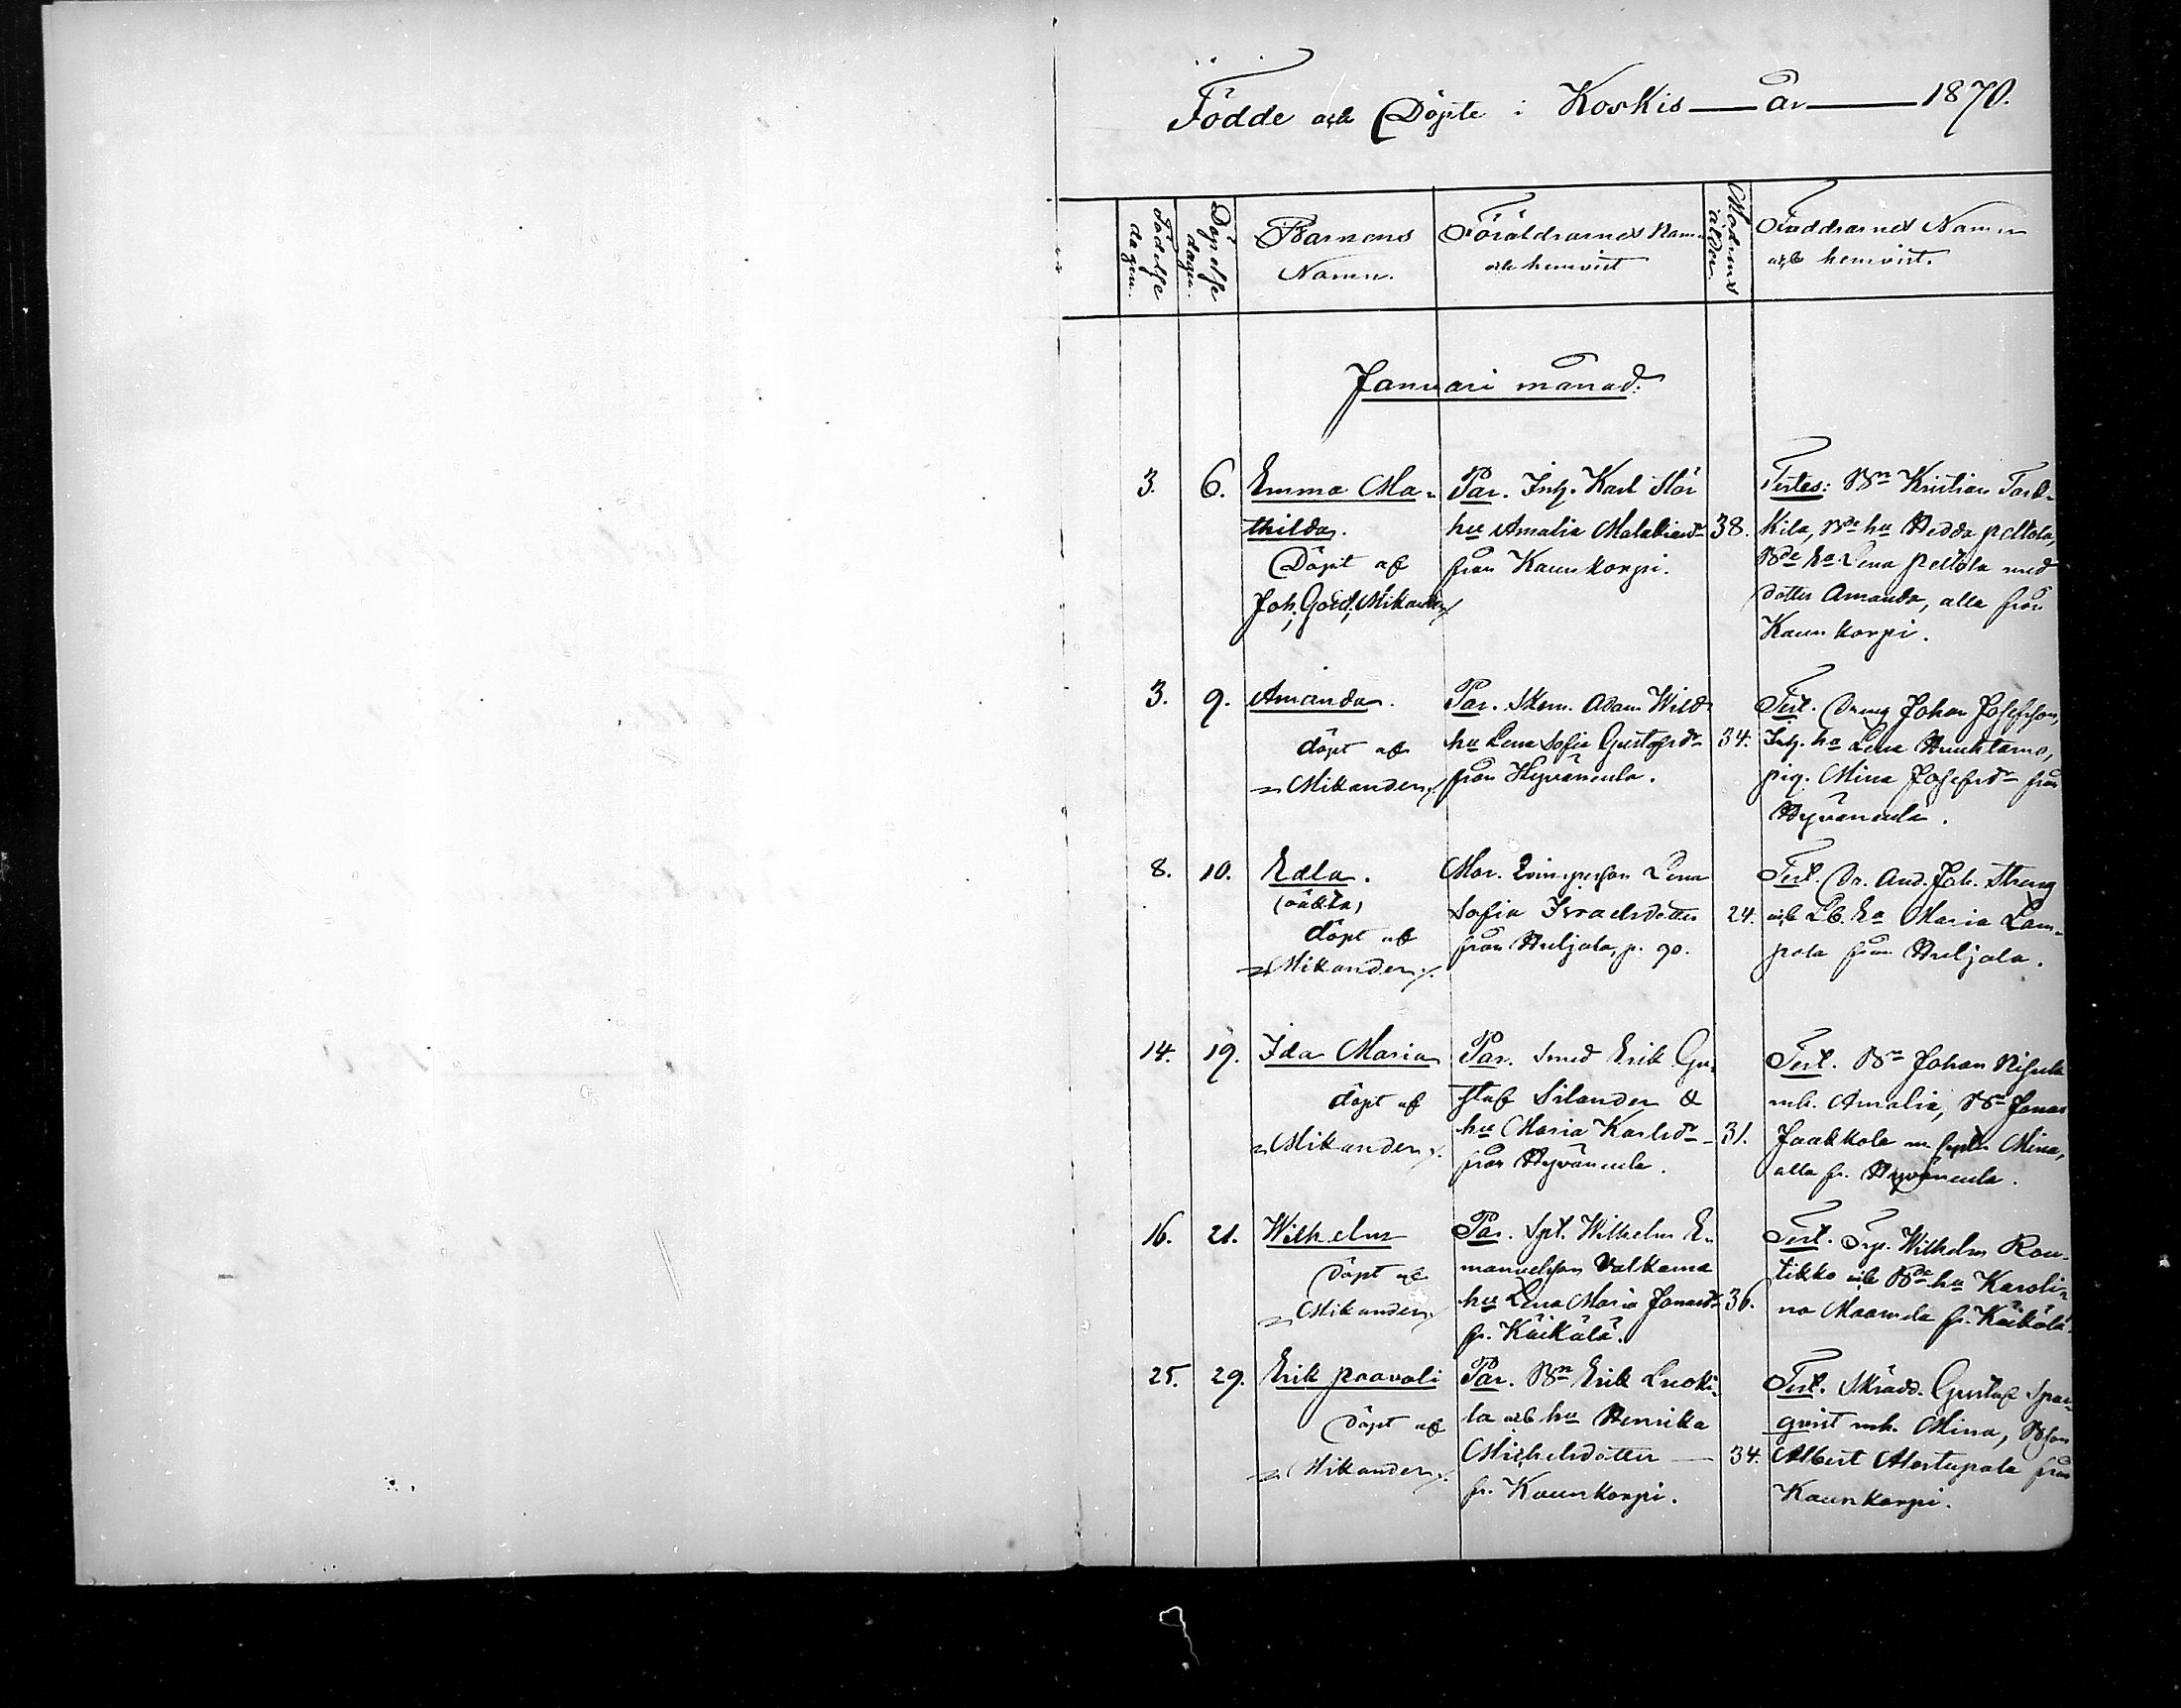 Födde och Döpte i Koskis — år — 1870.
Födelse
dagen.
Döpelse
dagen.
Barnens
Namn.
Föräldrarnes Namn
och hemvist
Modrens
ålder.
Faddrarnes Namn
och hemvist.
Januari månad.
3. 6. Emma Ma-
thilda.
Döpt af
Joh. Gust. Mikander
Par. Inh. Karl Stör
hu Amalia Malakiasdr 38.
från Kaunkorpi.
Testes: Bn Kristian
kila, Bde hu Hedda Peltola,
Bde Ea Lena Peltola med
dotter Amanda, alla från
Kaunkorpi.
3. 9. Amanda.
döpt af
Mikander.
Par. Skom. Adam Wild
hu Lena Sofia Gustafsdr 34.
från Hyväneula.
Test. Dreng Johan Josefsson,
Inh. ha Lena Huuhtamo,
pig. Mina Josefsdr från
Hyväneula.
8. 10. Edla.
(oäkta)
döpt af
Mikander.
Mor. Qvinsperson Lena
Sofia Israelsdotter 24.
från Huljala, p. 90.
Test. Dr. And. Joh. Streng
och Lb. Ea Maria Lam-
pola från Huljala.
14. 19. Ida Maria
döpt af
Mikander.
Par. Smed Erik Gu-
staf Silander &
hu Maria Karlsdr 31.
från Hyväneula.
Test. Bn Johan
mh. Amalia, Bn Jonas
Jaakkola m. Mina,
alla fr. Hyväneula.
16. 21. Wilhelm
Döpt af
Mikander
Par. Spt. Wilhelm E-
manuelsson Valkama
hu Lena Maria Jonasdr 36.
fr. Käikälä.
Test. Wilhelm Rou-
tikko och Bde hu Karoli-
na fr. Käikälä.
25. 29. Erik Paavali
Döpt af
Mikander.
Par. Bn Erik Luoki-
la och hu Henrika
Michelsdotter — 34.
fr. Kaunkorpi.
Test. Skrädd. Gustaf
qvist mh. Mina, Bson
Albert från
Kaunkorpi.